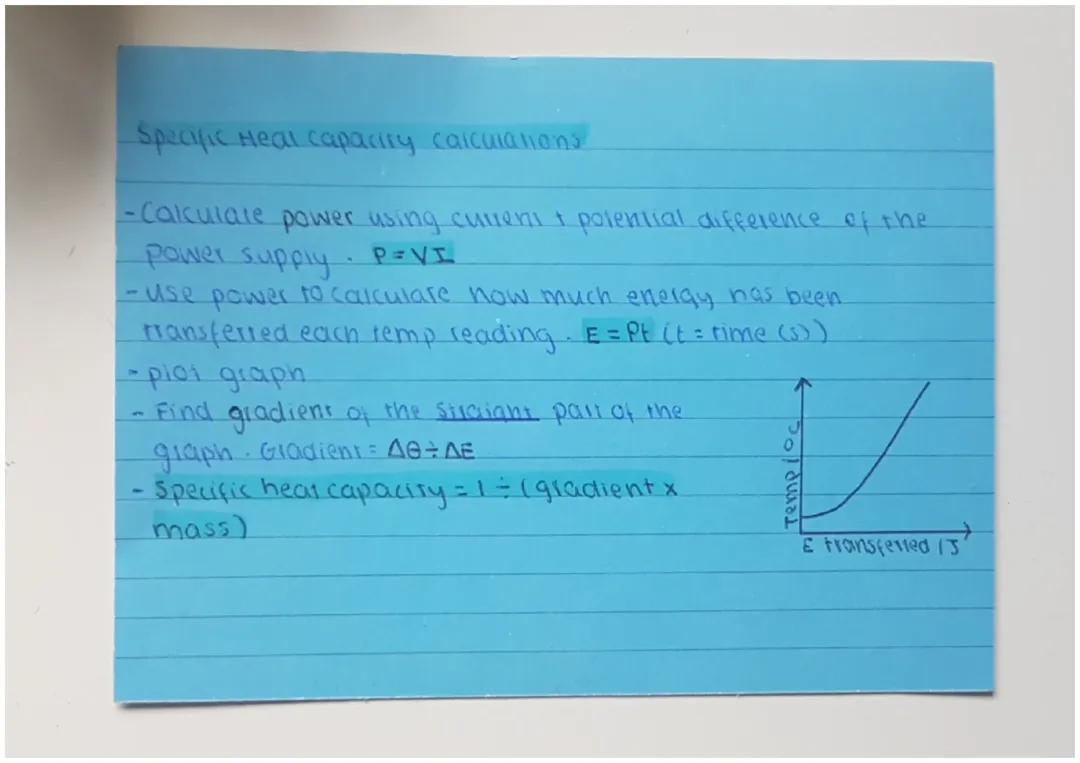 Specific Heat capacity calculations
- Calculate power using current + potential difference of the
power supply. P = VI
- use power to calculate how much energy has been
transferred each temp reading. E = Pt (t = time (s))
- plot graph
- Find gradient of the straight part of the
graph. Gradient = Δθ ÷ ΔE
- Specific heat capacity = 1 ÷ (gradient x
mass)
Temp / °C
E transferred / J